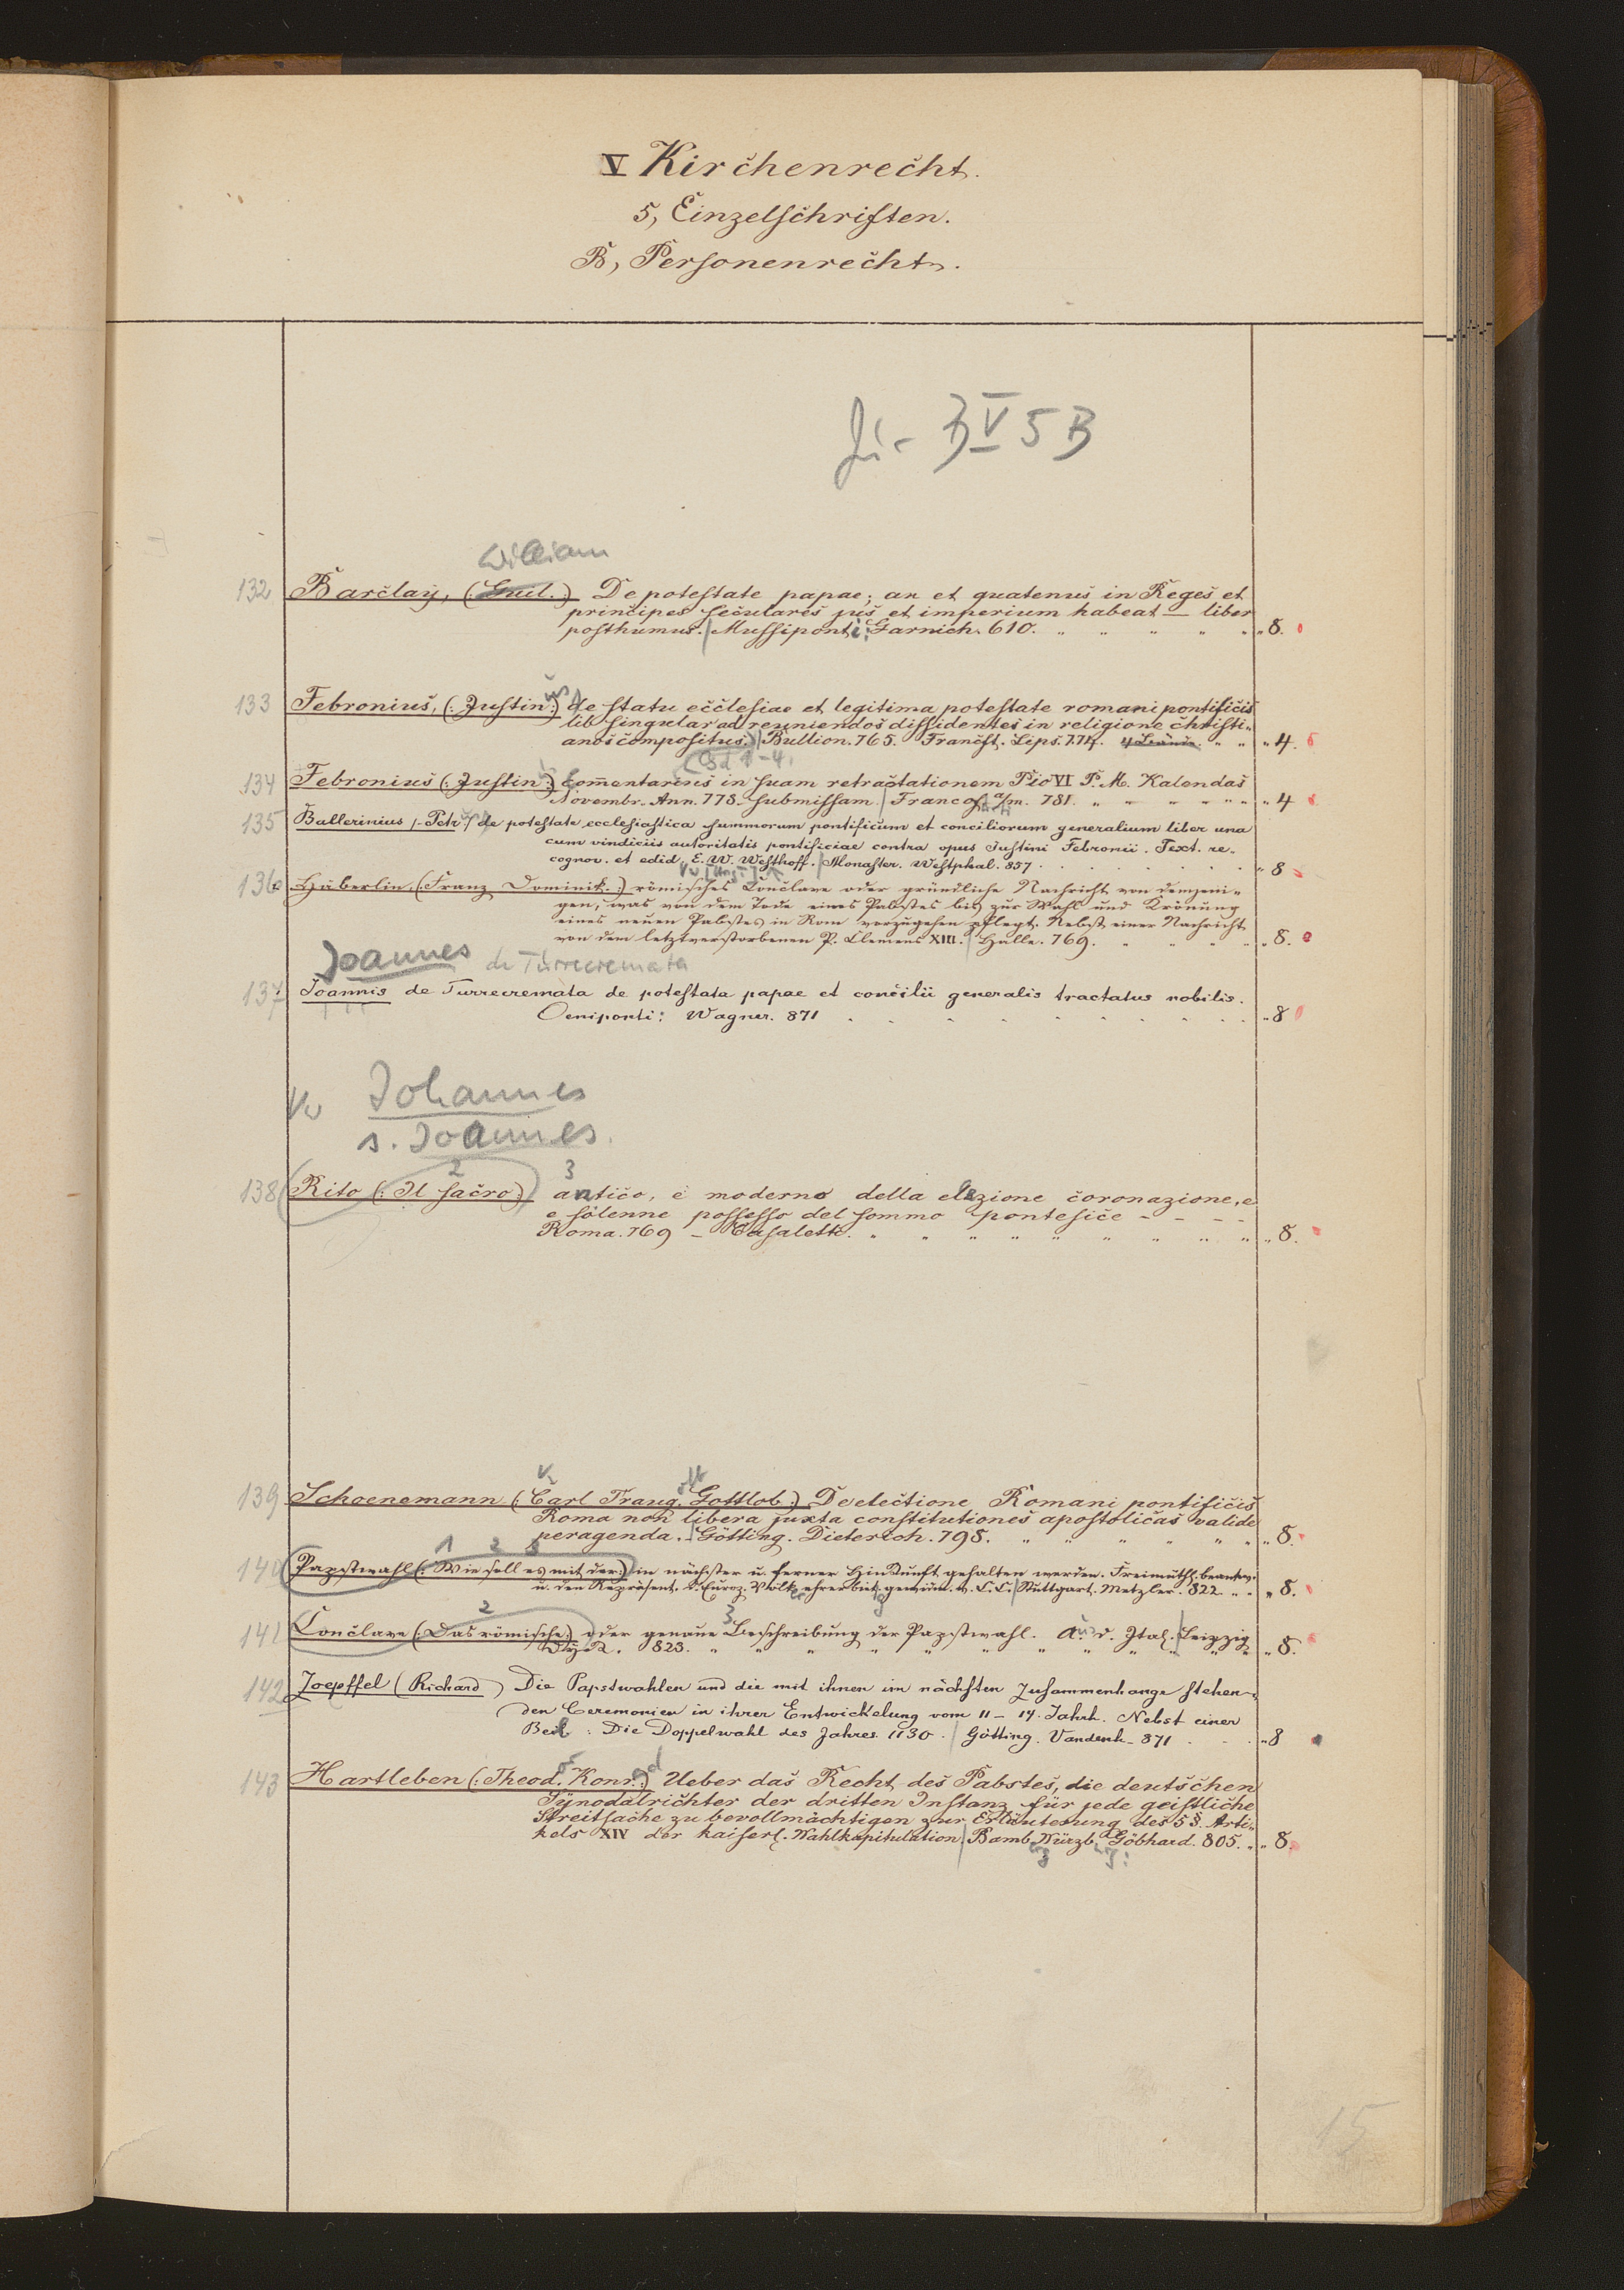 V Kirchenrecht.
5, Einzelschriften.
B, Personenrecht.
B V 5 B
William
132 Barclay, (: Guil. :) De potestate papae; an et quatenus in Reges et
principes seculares jus et imperium habeat — liber
posthumus. Mussiponti: Garnich. 610. " " " " " " 8.
133 Febronius, (: Justin :) de statu ecclesiae et legitima potestate romani pontificis
lib singular ad reuniendos dissidentes in religione christi-
anos compositus. Bullion. 765. Francft. Lips. 774. 4 Bände. " " " 4.
(Bd 1-4.
134 Febronius (: Justin :) Commentarius in suam retractationem Pio VI P. M. Kalendas
Novembr. Ann. 778. submissam. Francof a/m. 781. " " " " " " " 4
135 Ballerinius /- Petr / de potestate ecclesiastica summorum pontificum et conciliorum generalium liber una
cum vindiciis autoritatis pontificiae contra opus Justini Febronii. Text. re-
cognov. et edid. E. W. Westhoff. Monaster. Westphal. 857 . . . . . . " 8
136 Häberlin, (: Franz Dominik. :) römisches Conclave oder gründliche Nachricht von demjeni-
gen, was von dem Tode eines Pabstes bis zur Wahl und Krönung
eines neuen Pabstes in Rom vorzugehen pflegt. Nebst einer Nachricht
von dem letztverstorbenen P. Clemens XIII. Halle. 769. " " " " " 8.
Joannes de Turrecremata
137 Joannis de Turrecremata de potestata papae et concilii generalis tractatus nobilis.
Oeniponti: Wagner. 871 . . . . . . . . . " 8
Vw Johannes
s. Joannes.
2 3
138 Rito (: Il sacro :) antico, è moderno della elezione coronazione, e
e solenne possesso del sommo pontefice - - - -
Roma. 769 - Casaletti. " " " " " " " " " " 8.
139 Schoenemann (: Carl Traug. Gottlob :) De electione Romani pontificis
Roma non libera juxta constitutiones apostolicas valide
peragenda. Götting. Dieterich. 798. " " " " " " " 8.
1 2 3
140 Papstwahl (: Wie soll es mit der :) in nächster u. ferner Hinkunft gehalten werden. Freimüthl. beantw.
u. den Repräsent. d. Europ. Völk. ehrerbiet. gewidm. v. C. C. Stuttgart. Metzler. 822 " " " 8.
2 3
141 Conclave (: Das römische :) oder genaue Beschreibung der Papstwahl. A. d. Ital. Leipzig
Dyk. 823. " " " " " " " " " " " 8.
142 Zoepffel (Richard) Die Papstwahlen und die mit ihnen im nächsten Zusammenhange stehen-
den Ceremonien in ihrer Entwickelung vom 11 - 14. Jahrh. Nebst einer
Beil: Die Doppelwahl des Jahres 1130. Götting. Vandenh. 871 . . . " 8
143 Hartleben (: Theod. Konr. :) Ueber das Recht des Pabstes, die deutschen
Synodalrichter der dritten Instanz für jede geistliche
Streitsache zu bevollmächtigen zur Erläuterung des 5 §. Arti-
kels XIV der kaiserl. Wahlkapitulation. Bamb. Würzb. Göbhard. 805. " " 8.
15